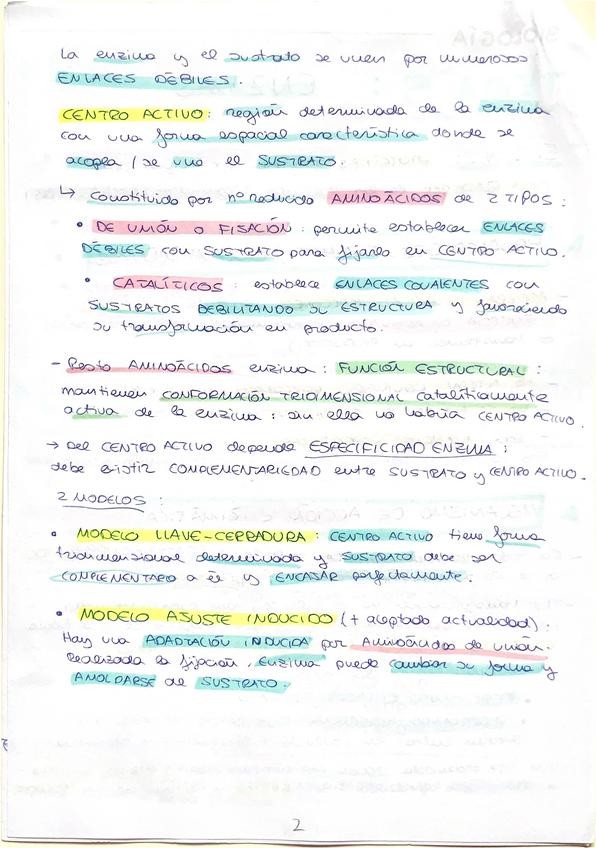 La enzima y el sustrato se unen por numerosos
ENLACES DÉBILES.
CENTRO ACTIVO: región determinada de la enzima
con una forma espacial característica donde se
acopla / se une el SUSTRATO.
↳ Constituido por nº reducido AMINOÁCIDOS de 2 TIPOS:
• DE UNIÓN O FIJACIÓN: permite establecer ENLACES
DÉBILES con SUSTRATO para fijarlo en CENTRO ACTIVO.
• CATALÍTICOS: establece ENLACES COVALENTES con
SUSTRATOS DEBILITANDO su ESTRUCTURA y favoreciendo
su transformación en producto.
- Resto AMINOÁCIDOS enzima: FUNCIÓN ESTRUCTURAL:
mantienen CONFORMACIÓN TRIDIMENSIONAL catalíticamente
activa de la enzima: sin ella no habría CENTRO ACTIVO.
→ Del CENTRO ACTIVO depende ESPECIFICIDAD ENZIMA:
debe existir COMPLEMENTARIEDAD entre SUSTRATO y CENTRO ACTIVO.
2 MODELOS:
• MODELO LLAVE-CERRADURA: CENTRO ACTIVO tiene forma
tridimensional determinada y SUSTRATO debe ser
COMPLEMENTARIO a él y ENCAJAR perfectamente.
• MODELO AJUSTE INDUCIDO (+ aceptado actualidad):
Hay una ADAPTACIÓN INDUCIDA por Aminoácidos de unión.
Realizada la fijación, ENZIMA puede cambiar su forma y
AMOLDARSE al SUSTRATO.
2